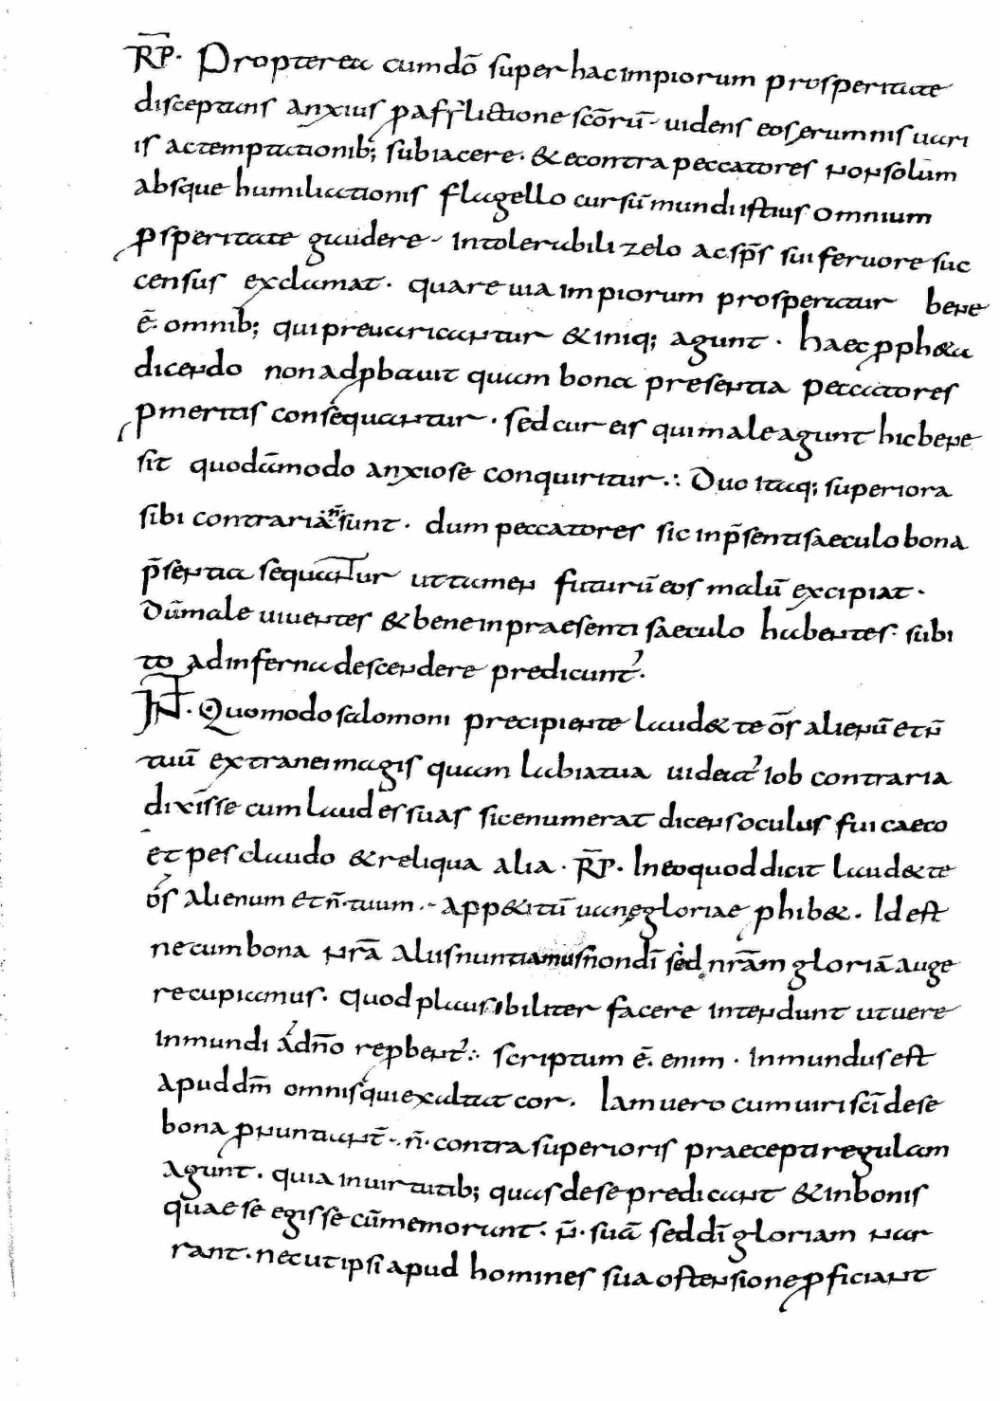 R̄P̄. Propterea cum dõ super hac impiorum prosperitate
disceptans anxius p afflictione scõrũ. uidens eos erumnis uari
is ac temptationib; subiacere. & econtra peccatores non solum
absque humiliationis flagello cursũ mundi istius omnium
ꝓsperitate gaudere. Intolerabili zelo ac sp̃s sui feruore suc
census exclamat. quare uia impiorum prosperatur bene
ẽ. omnib; qui preuaricantur & iniq; agunt. haec ꝓph&a
dicendo non adꝓbauit quam bona presentia peccatores
ꝓ meritis consequantur. sed cur eis qui male agunt hic bene
sit quodãmodo anxiose conquiritur.: Duo itaq; superiora
sibi contraria ñ sunt. dum peccatores sic in p̃senti saeculo bona
p̃sentia sequantur ut tamen futurũ eos malũ excipiat.
Dũ male uiuentes & bene in praesenti saeculo habentes. subi
to ad inferna descendere predicunt'.
IN̄T. Quomodo salomoni precipiente laud& te õs alienũ et ñ
tuũ extranei magis quam labia tua uideat' iob contraria
dixĩsse cum laudes suas sic enumerat dicens oculus fui caeco
et pes claudo & reliqua alia. R̄P̄. In eo quod dicit laud& te
õs alienum et ñ. tuum.- app&itũ uanę gloriae phib&. Id est
ne cum bona nrã aliis nuntiamus non dĩ sed nrãm gloriã auge
re cupiamus. quod plausibiliter facere intendunt ut uere
inmundi a dño reꝓbent'.: scriptum ẽ. enim. Inmundus est
apud dm̃ omnis qui exaltat cor. Iam uero cum uiri scĩ de se
bona ꝓnuntiant̃. ñ. contra superioris praecepti regulam
agunt. quia in uirtutib; quas de se predicant & in bonis
quae se egisse cũmemorunt. ñ. suã sed dĩ gloriam nar
rant. nec ut ipsi apud homines sua ostensione ꝓficiant